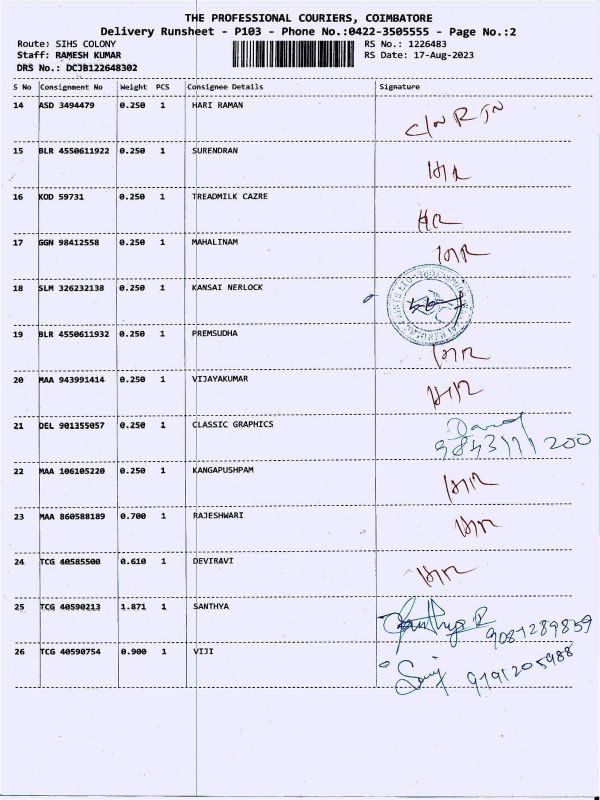 THE PROFESSIONAL COURIERS, COIMBATORE
Delivery Runsheet - P103 - Phone No.:0422-3505555 - Page No.:2
Route: SIHS COLONY RS No.: 1226483
Staff: RAMESH KUMAR RS Date: 17-Aug-2023
DRS No.: DCJB122648302
S No Consignment No Weight PCS Consignee Details Signature
14 ASD 3494479 0.250 1 HARI RAMAN
15 BLR 4550611922 0.250 1 SURENDRAN
16 KOD 59731 0.250 1 TREADMILK CAZRE
17 GGN 98412558 0.250 1 MAHALINAM
18 SLM 326232138 0.250 1 KANSAI NERLOCK
19 BLR 4550611932 0.250 1 PREMSUDHA
20 MAA 943991414 0.250 1 VIJAYAKUMAR
21 DEL 901355057 0.250 1 CLASSIC GRAPHICS
22 MAA 106105220 0.250 1 KANGAPUSHPAM
23 MAA 860588189 0.700 1 RAJESHWARI
24 TCG 40585500 0.610 1 DEVIRAVI
25 TCG 40590213 1.871 1 SANTHYA 9087289859
26 TCG 40590754 0.900 1 VIJI 9191205988